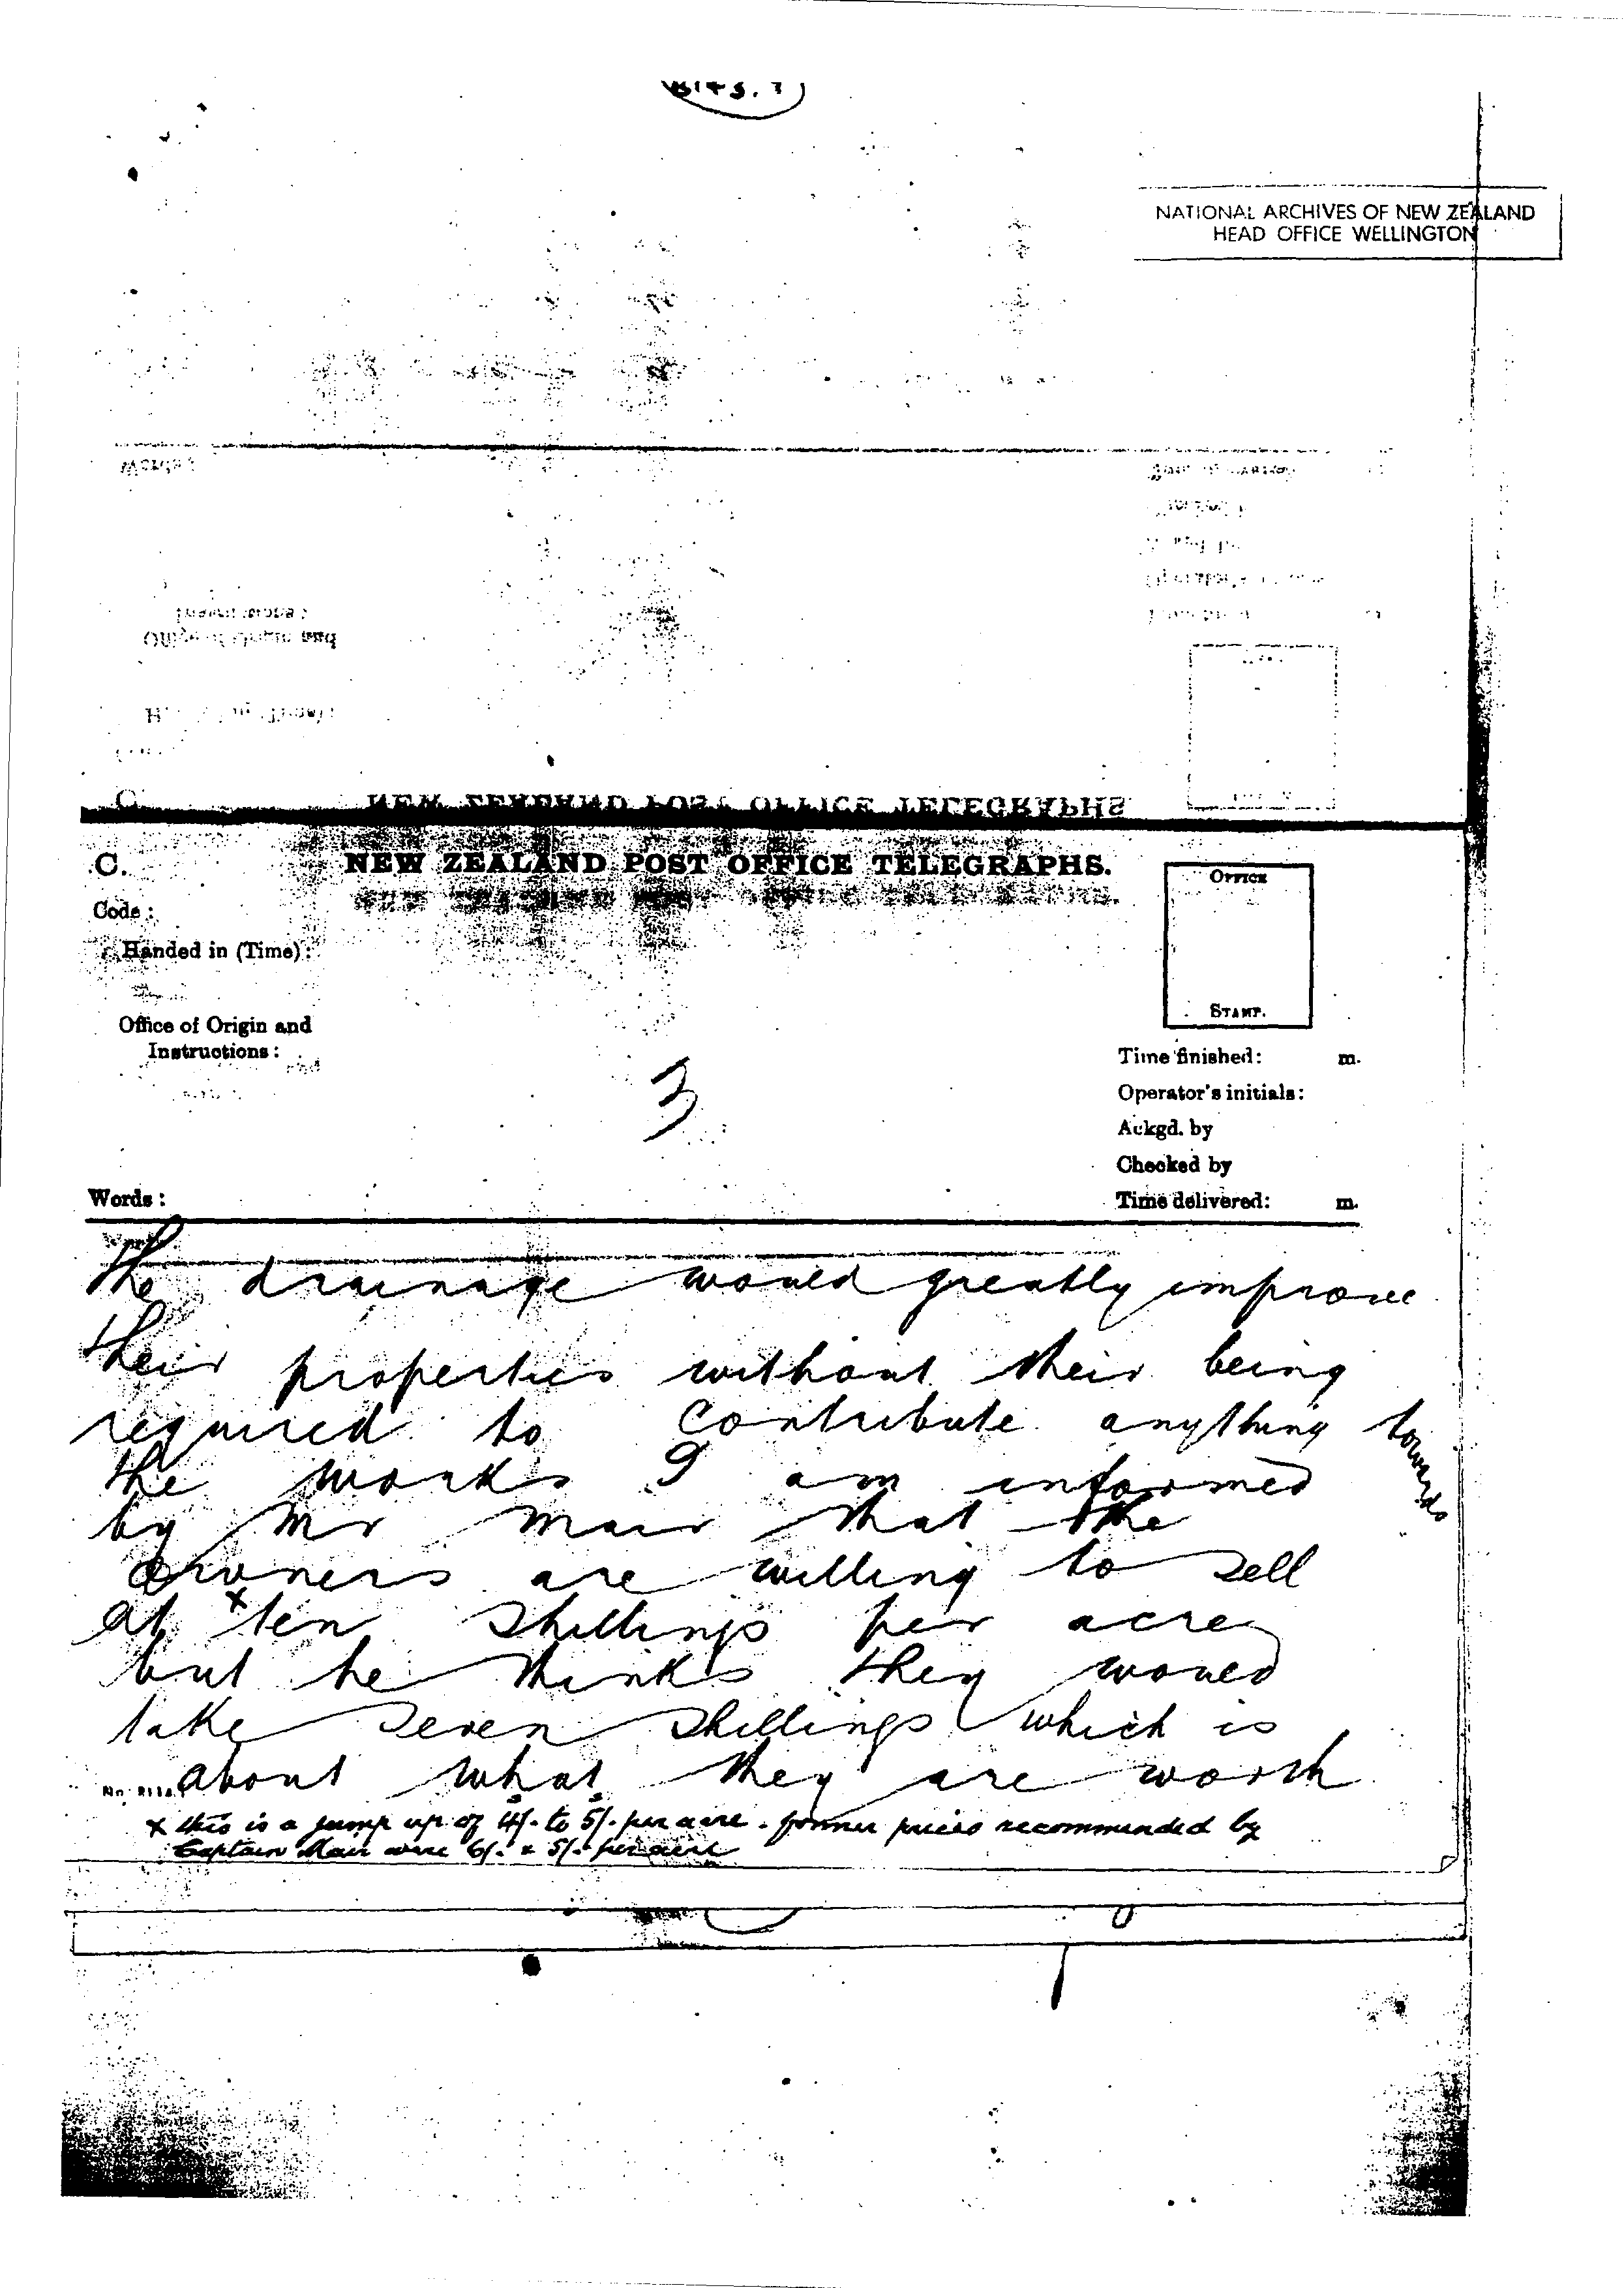 NATIONAL ARCHIVES OF NEW ZEALAND
HEAD OFFICE WELLINGTON
C.
NEW ZEALAND POST OFFICE TELEGRAPHS.
OFFICE
STAMP.
Code :
Handed in (Time) :
Office of Origin and
Instructions :
3
Time finished: m.
Operator's initials:
Ackgd. by
Checked by
Words :
Time delivered: m.
the drainage would greatly improve
their properties without their being
required to contribute anything towards
the works I am informed
by Mr Mair that the
owners are willing to sell
at x ten shillings per acre
but he thinks they would
take seven shillings which is
about what they are worth
x this is a jump up of 4/- to 5/- per acre. former prices recommended by
Captain Mair were 6/- & 5/- per acre